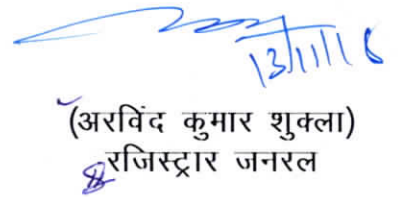 13/11/18
(अरविंद कुमार शुक्ला)
रजिस्ट्रार जनरल